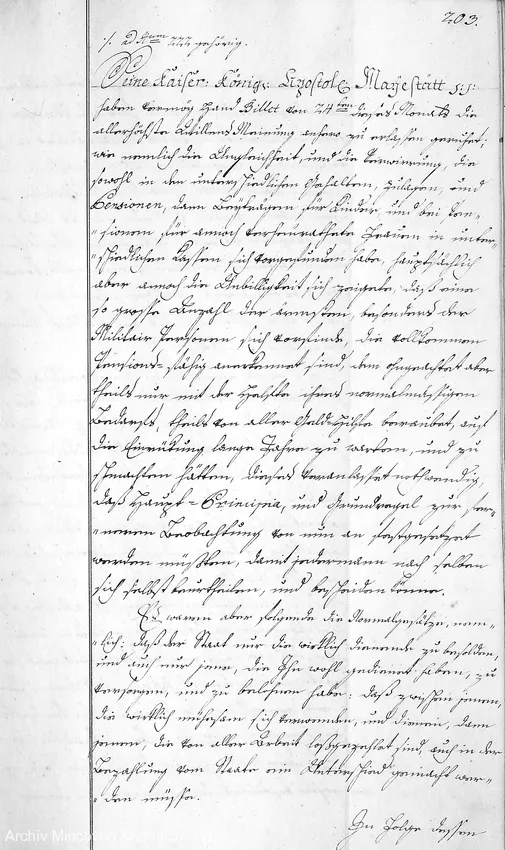 203.
ad Num 222 gehörig.
Seine Kaiser: König: Apostol: Mayestätt
haben vermög Hand Billet von 24ten dieses Monats die
allerhöchste Willens Meinung anhero zu erlassen geruhet:
wie nemlich die Ungleichheit, und die Verwirrung, die
sowohl in den unterschiedlichen Gehalten, Zulagen, und
Pensionen, dann Beyträgen für Kinder, und bei Pen=
=sionen für annoch verheurathete Frauen in unter=
=schiedlichen Kassen sich vorgefunden habe, hauptsächlich
aber annoch die Unbilligkeit sich zeigete, daß eine
so grosse Anzahl der ärmsten, besonders der
Militair Personen sich vorfinde, die vollkommen
Pensions=fähig anerkennet sind, dem ohngeachtet aber
theils nur mit der Helfte ihres normalmässigen
Bedarfs, theils von aller Geld=Hilfe beraubet, auf
die Einrückung lange Jahre zu warten, und zu
schmachten hätten, dieses veranlasset nothwendig,
daß Haupt=Principia, und Grundregel zur fer=
=neren Beobachtung von nun an festgesetzet
werden müssten, damit jedermann nach selben
sich selbst beurtheilen, und bescheiden könne.
Es waren aber folgende die Normalgesätze, nem=
=lich: daß der Staat nur die wirklich dienende zu besolden,
und auch nur jene, die Ihm wohl gedienet haben, zu
versorgen, und zu belohnen habe: daß zwischen jenen,
die wirklich mühesam sich verwenden, und dienen, dann
jenen, die von aller Arbeit loßgezehlet sind, auch in der
Bezahlung vom Staate ein Unterschied gemacht wer=
=den müsse.
In Folge dessen
Archiv Mincovny